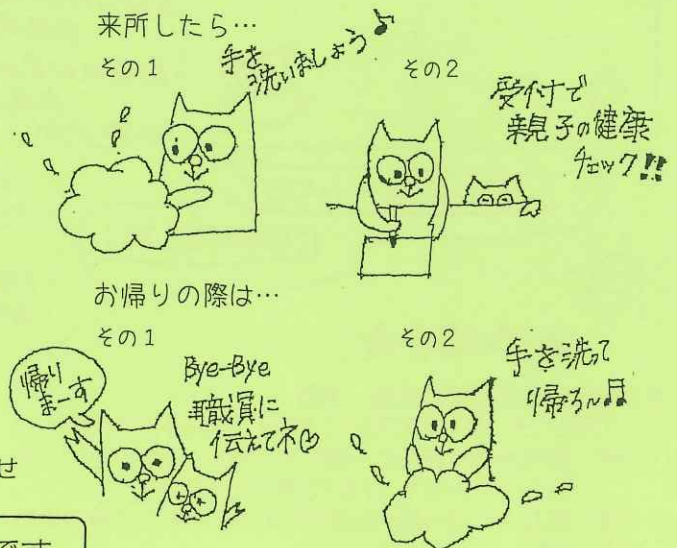 来所したら…
その1
手を
洗いましょう♪
その2
受付で
親子の健康
チェック!!
お帰りの際は…
その1
帰り
まーす
Bye-Bye
職員に
伝えてネ
その2
手を洗って
帰る～♫
せ
です